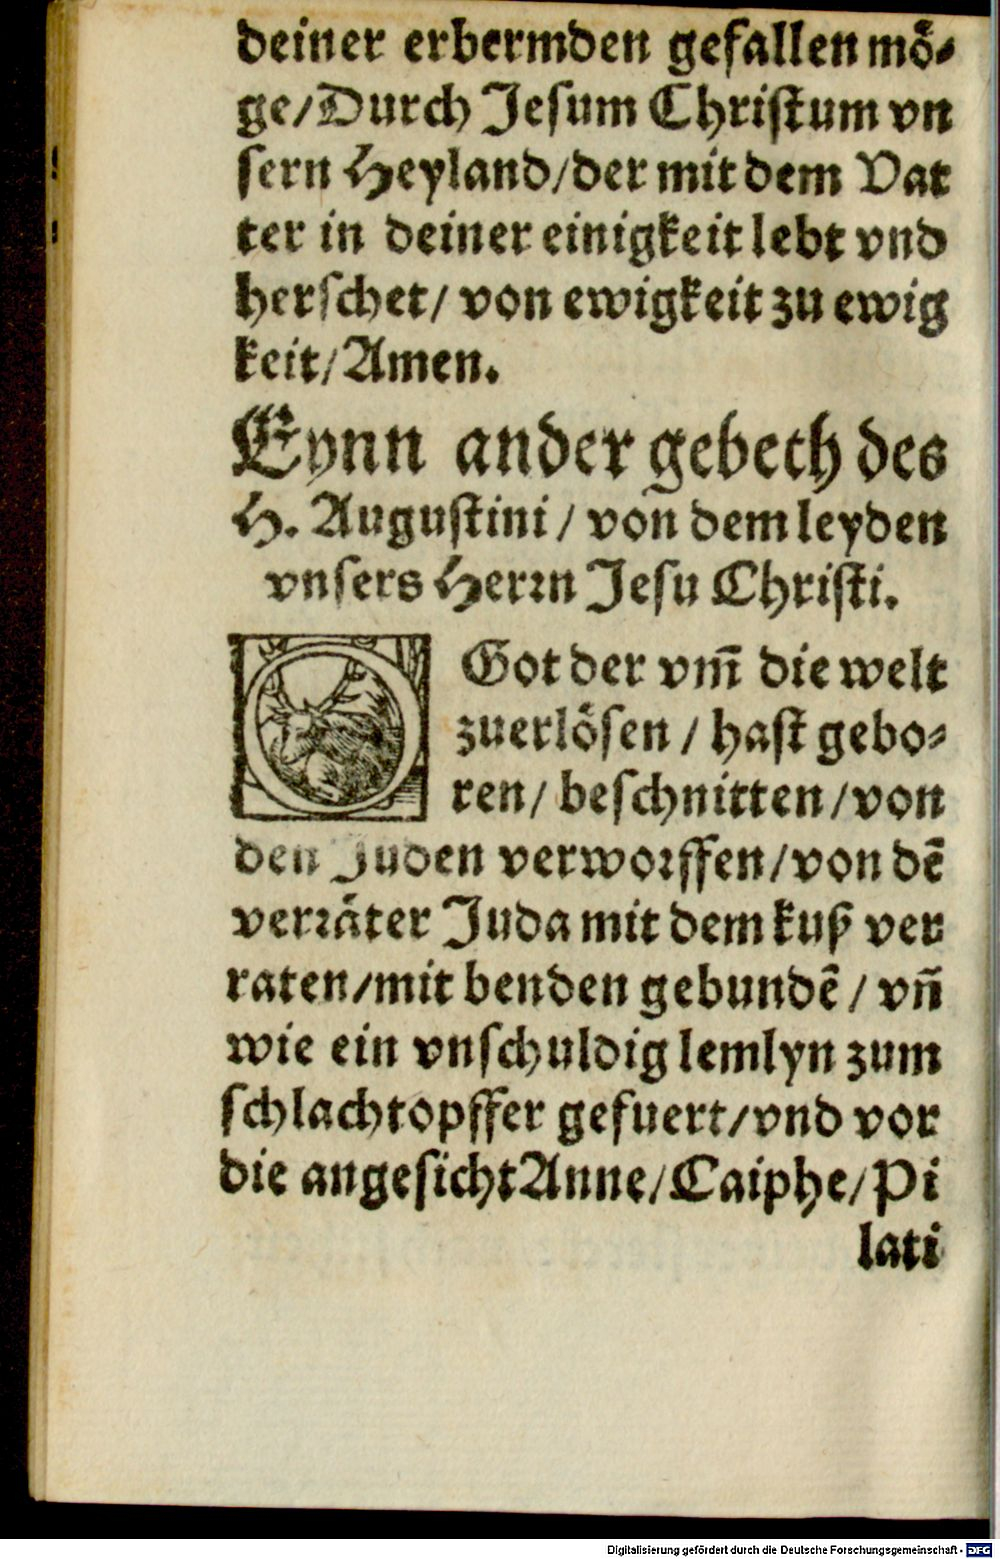 deiner erbermden gefallen mö⸗
ge/Durch Jesum Christum vn
sern Heyland/der mit dem Vat
ter in deiner einigkeit lebt vnd
herschet/ von ewigkeit zu ewig
keit/Amen.
Eynn ander gebeth des
H. Augustini / von dem leyden
vnsers Herrn Jesu Christi.
O Got der vm̄ die welt
zuerlösen / hast gebo⸗
ren/ beschnitten/von
den Juden verworffen/von dē
verräter Juda mit dem kuß ver
raten/mit benden gebundē/ vn̄
wie ein vnschuldig lemlyn zum
schlachtopffer gefuert/vnd vor
die angesicht Anne/Caiphe/Pi
lati
Digitalisierung gefördert durch die Deutsche Forschungsgemeinschaft - DFG